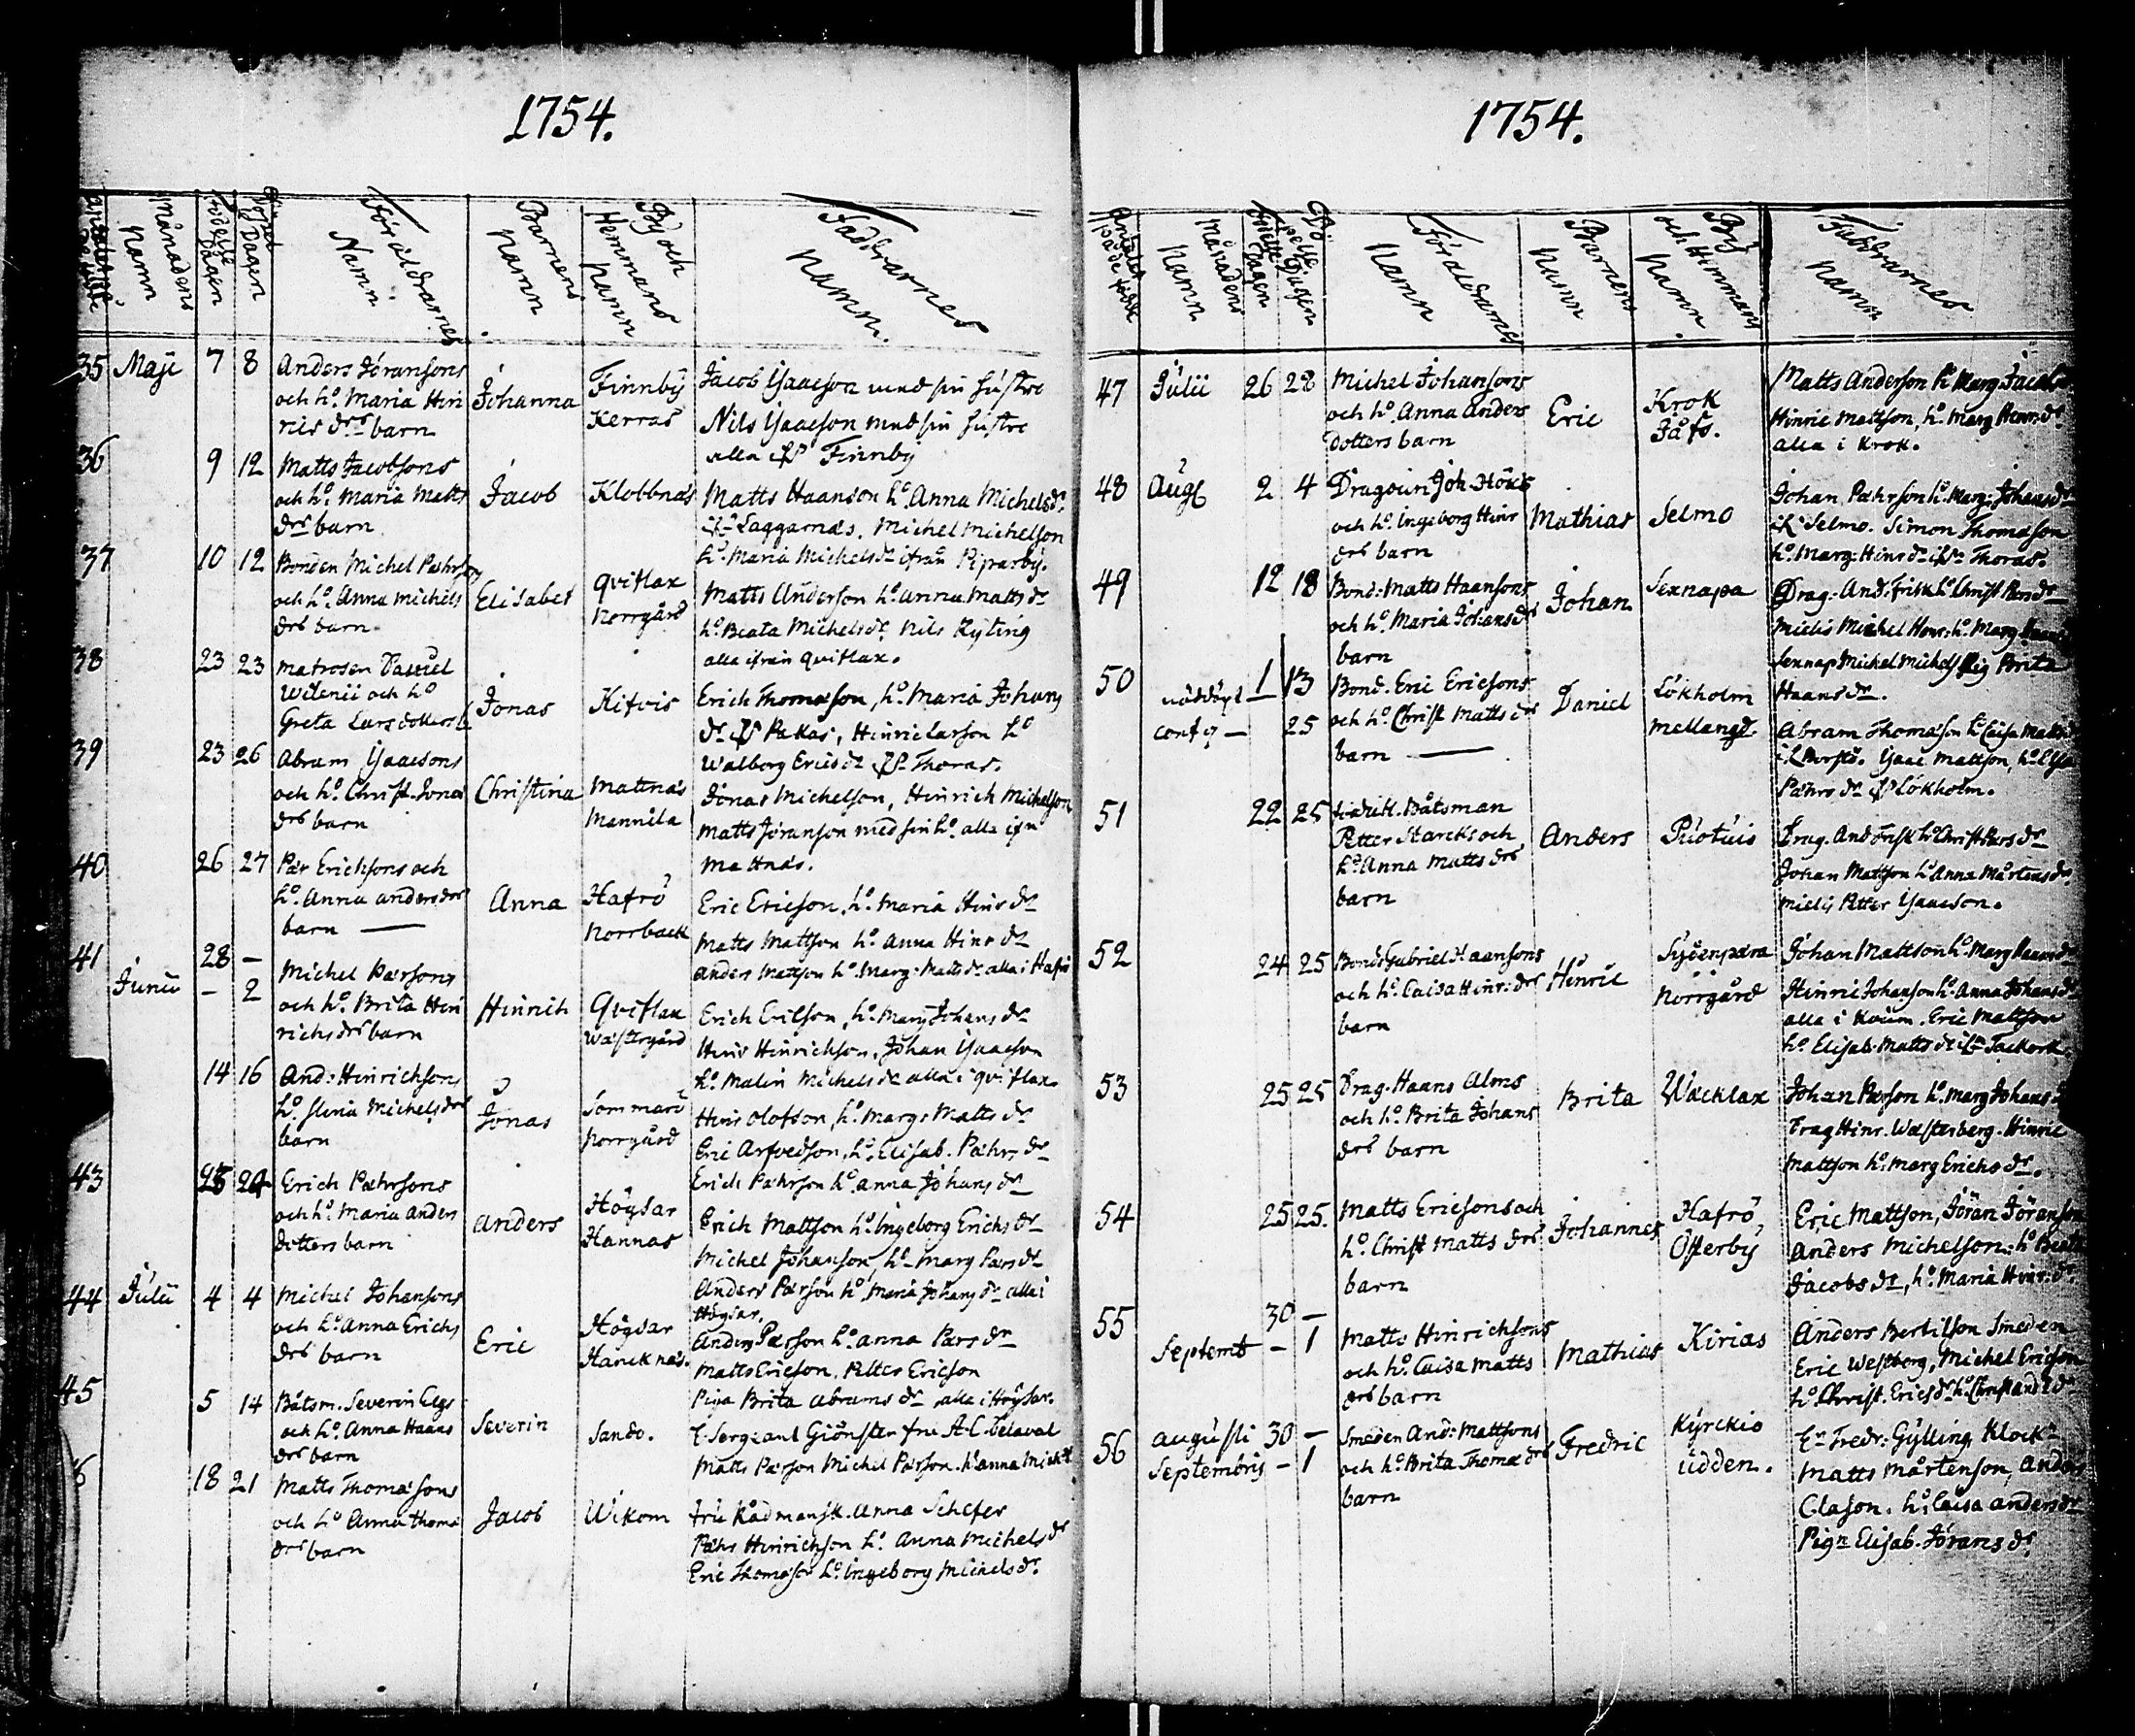 1754.
Månadens Namn
Födelse Dagen
Döpelse Dagen
Föräldrarnes Namn.
Barnens Namn
By och Hemmans Namn
Faddrarnes Namn.
35 Maji 7 8 Anders Jöransons
och h:o Maria Hin
rics drs barn
Johanna
Finnby
Kerras
Jacob Ysaacson med sin hustro
Nils Ysaacson med sin hustro
alla ifr Finnby
36 9 12 Matts Jacobsons
och h:o Maria Matts
drs barn
Jacob
Klobbnäs
Matts Haanson h:o Anna Michelsdr
ifr Laggarnäs. Michel Michelson
h:o Maria Michelsdr ifrån Piparby.
37 10 12 Bonden Michel Pährsons
och h:o Anna Michels
drs barn
Elisabet
Qviflax
Norrgård
Matts Anderson h:o Anna Mattsdr
h:o Beata Michelsdr Nils Kyting
alla ifrån Qviflax.
38 23 23 Matrosen Daniel
Wilenii och h:o
Greta Lars dotters b
Jonas
Kitvis
Erich Thomason, h:o Maria Johans
dr ifr Pakas, Hinric Larson h:o
Walborg Ericsdr ifr Thoras.
39 23 26 Abram Ysaacsons
och h:o Christ. Jonas
drs barn
Christina
Matnäs
Mannila
Jonas Michelson, Hinrich Michelson
Matts Jöranson med sin h:o alla ifrn
Mattnäs.
40 26 27 Pär Erichsons och
h:o Anna andersdrs
barn —
Anna
Hafrö
Norrback
Eric Ericson, h:o Maria Hinrdr
Matts Mattson h:o Anna Hinrdr
Anders Mattson h:o Marg: Mattsdr alla i Hafrö
41 28 —
Junii — 2 Michel Pärsons
och h:o Brita Hin
richsdrs barn
Hinrich
Qviflax
Wästergård
Erich Erilson, h:o Marg Johansdr
Hinr Hinrichson, Johan Ysaacson
h:o Malin Michelsdr alla i Qviflax
14 16 And: Hinrichsons
h:o Michelsdrs
barn
Jonas
Sommarö
Norrgård
Hinr Olofson, h:o Marg: Mattsdr
Eric Arfvedson, h:o Elisab. Pährsdr
Erich Pährson h:o Anna Johansdr
43 23 24 Erich Pährsons
och h:o Maria Anders
dotters barn
Anders
Högsar
Hannas
Erich Mattson h:o Ingeborg Erichsdr
Michel Johanson, h:o Marg Pärsdr
Anders Pärson h:o Maria Johansdr alla i
Högsar.
44 Julii 4 4 Michel Johansons
och h:o Anna Erichs
drs barn
Eric
Högsar
Harcknäs.
Anders Pärson h:o Anna Pärsdr
Matts Ericson, Petter Ericson
Piga Brita Abramsdr alla i Högsar.
45 5 14 Båtsm. Severin Elgs
och h:o Anna Haans
drs barn
Severin
Sando.
Sergeant Giönsten fru A.C. Delaval
Matts Pärson Michel Pärson. h:o Anna Mich:dr
6 18 21 Matts Thomasons
och h:o Anna Thoma
drs barn
Jacob
Wikom
fru Rådmansk. Anna Schefer
Pähr Hinrichson h:o Anna Michelsdr
Eric Thomason h:o Ingeborg Michelsdr
1754.
Månadens Namn
Födelse Dagen
Döpelse Dagen
Föräldrarnes Namn
Barnens Namn
By och Hemmans Namn.
Faddrarnes Namn
47 Julii 26 28 Michel Johansons
och h:o Anna Anders
dotters barn
Eric
Krok
Jåfs.
Matts Anderson h:o Marg Jacobs
Hinric Mattson, h:o Marg Henrdr
alla i Krok.
48 Aug 2 4 Dragoun Joh Höks
och h:o Ingeborg Hinr
drs barn
Mathias
Selmo
Johan Pährson h:o Marg: Johansdr
ifr Selmo. Simon Thomason
h:o Marg: Hinrdr ifr Thoras.
49 12 18 Bond: Matts Haansons
och h:o Maria Johansdrs
barn
Johan
Sexnapa
Drag. And: Frisk h:o Christ Pärsdr
Michel Henr. h:o Marg Haans
Sexnap Michel Michels Pig Brita
Haansdr.
50 nöddöpt — 1 13
conf — 25
Bond. Eric Ericsons
och h:o Christ Mattsdrs
barn —
Daniel
Lökholm
Mellangd.
Abram Thomason h:o Caisa Mattsdr
Ysaac Mattson, h:o Elsa
Pährsdr ifr Lökholm.
51 22 25 Båtsman
Petter Starcks och
h:o Anna Mattsdrs
barn
Anders
Puotuis
Drag. And Frisk h:o Christ Pärsdr
Johan Mattson h:o Anna Mårtensdr
Petter Ysaacson.
52 24 25 Bond: Gabriel Haansons
och h:o Caisa Hinr:drs
barn
Henric
Syöenpära
Norrgård
Johan Mattson h:o Marg Haansdr
Hinric Johanson h:o Anna Johansdr
alla i Kaum. Eric Mattson
h:o Elisab. Mattsdr ifr Tackork
53 25 25 Drag. Haans Alms
och h:o Brita Johans
drs barn
Brita
Wäcklax
Johan Pärson h:o Marg Johans
Drag Hinr. Wästerberg. Hinric
Mattson h:o Marg Erichsdr.
54 25 25. Matts Ericsons och
h:o Christ Mattsdrs
barn
Johannes
Hafrö,
Österby
Eric Mattson, Jöran Jöranson
Anders Michelson: h:o Beata
Jacobsdr, h:o Maria Hinr:dr.
55 30 —
Septemb — 1 Matts Hinrichsons
och h:o Caisa Matts
drs barn
Mathias
Kirias
Anders Bertilson Smeden
Eric Westberg, Michel Ericson
h:o Christ. Ericsdr h:o Christ Andersdr
56 Augusti 30 —
Septembris — 1
Smeden And: Mattsons
och h:o Brita Thomædrs
barn
Fredric
Kyrckio
udden.
Hr Fredr: Gylling, Klock
Matts Mårtenson, Anders
Clason. h:o Caisa Andersdr
Pign Elisab. Jöransdr.